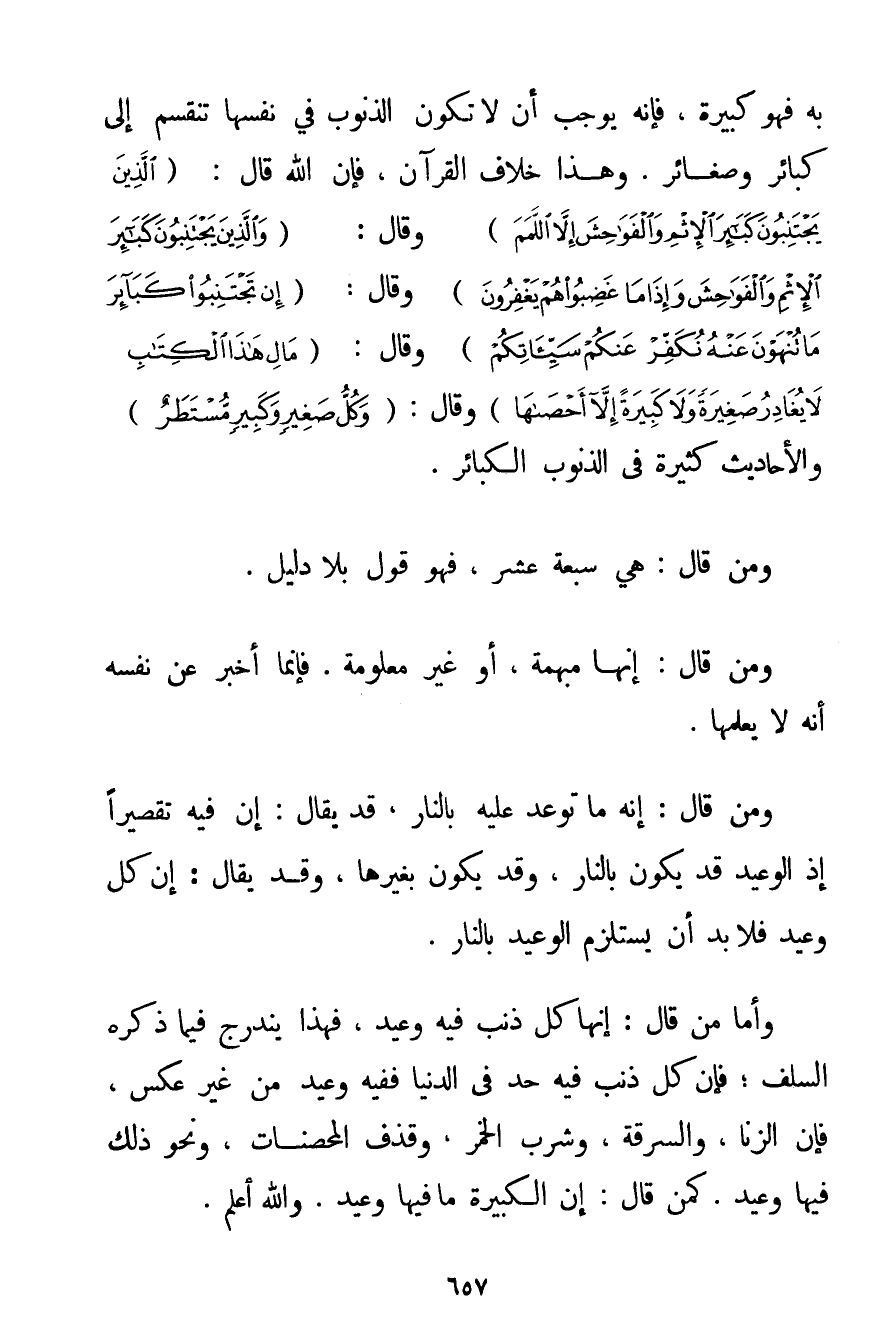 به فهو كبيرة ، فإنه يوجب أن لا تكون الذنوب في نفسها تنقسم إلى
كبائر وصغـائر . وهـذا خلاف القرآن ، فإن الله قال : ( ٱلَّذِينَ
يَجْتَنِبُونَ كَبَٰٓئِرَ ٱلْإِثْمِ وَٱلْفَوَٰحِشَ إِلَّا ٱللَّمَمَ ) وقال : ( وَٱلَّذِينَ يَجْتَنِبُونَ كَبَٰٓئِرَ
ٱلْإِثْمِ وَٱلْفَوَٰحِشَ وَإِذَا مَا غَضِبُوا۟ هُمْ يَغْفِرُونَ ) وقال : ( إِن تَجْتَنِبُوا۟ كَبَآئِرَ
مَا تُنْهَوْنَ عَنْهُ نُكَفِّرْ عَنكُمْ سَيِّـَٔاتِكُمْ ) وقال : ( مَالِ هَٰذَا ٱلْكِتَٰبِ
لَا يُغَادِرُ صَغِيرَةً وَلَا كَبِيرَةً إِلَّآ أَحْصَىٰهَا ) وقال : ( وَكُلُّ صَغِيرٍ وَكَبِيرٍ مُّسْتَطَرٌ )
والأحاديث كثيرة فى الذنوب الكبائر .
ومن قال : هي سبعة عشر ، فهو قول بلا دليل .
ومن قال : إنهـا مبهمة ، أو غير معلومة . فإنما أخبر عن نفسه
أنه لا يعلمها .
ومن قال : إنه ما توعد عليه بالنار ، قد يقال : إن فيه تقصيراً
إذ الوعيد قد يكون بالنار ، وقد يكون بغيرها ، وقـد يقال : إن كل
وعيد فلا بد أن يستلزم الوعيد بالنار .
وأما من قال : إنها كل ذنب فيه وعيد ، فهذا يندرج فيما ذكره
السلف ؛ فإن كل ذنب فيه حد فى الدنيا ففيه وعيد من غير عكس ،
فإن الزنا ، والسرقة ، وشرب الخمر ، وقذف المحصنـات ، ونحو ذلك
فيها وعيد . كمن قال : إن الكبيرة ما فيها وعيد . والله أعلم .
٦٥٧